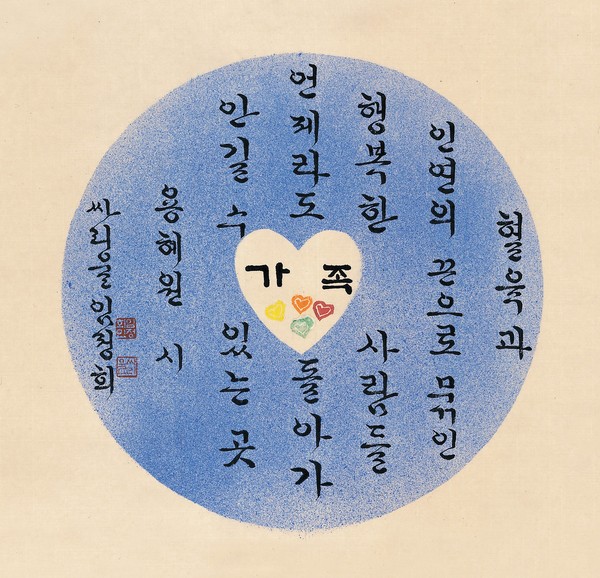 가 족
혈육과
인연의 끈으로 묶인
행복한 사람들
언제라도 돌아가
안길 수 있는 곳
용혜원 시
싸리골 임정희